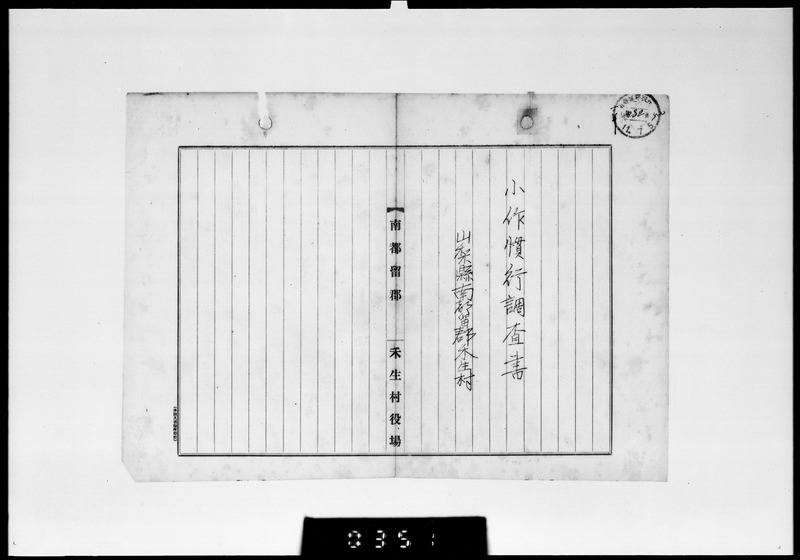 小作慣行調査書
山梨縣南都留郡禾生村
南都留郡 禾生村役場
0351